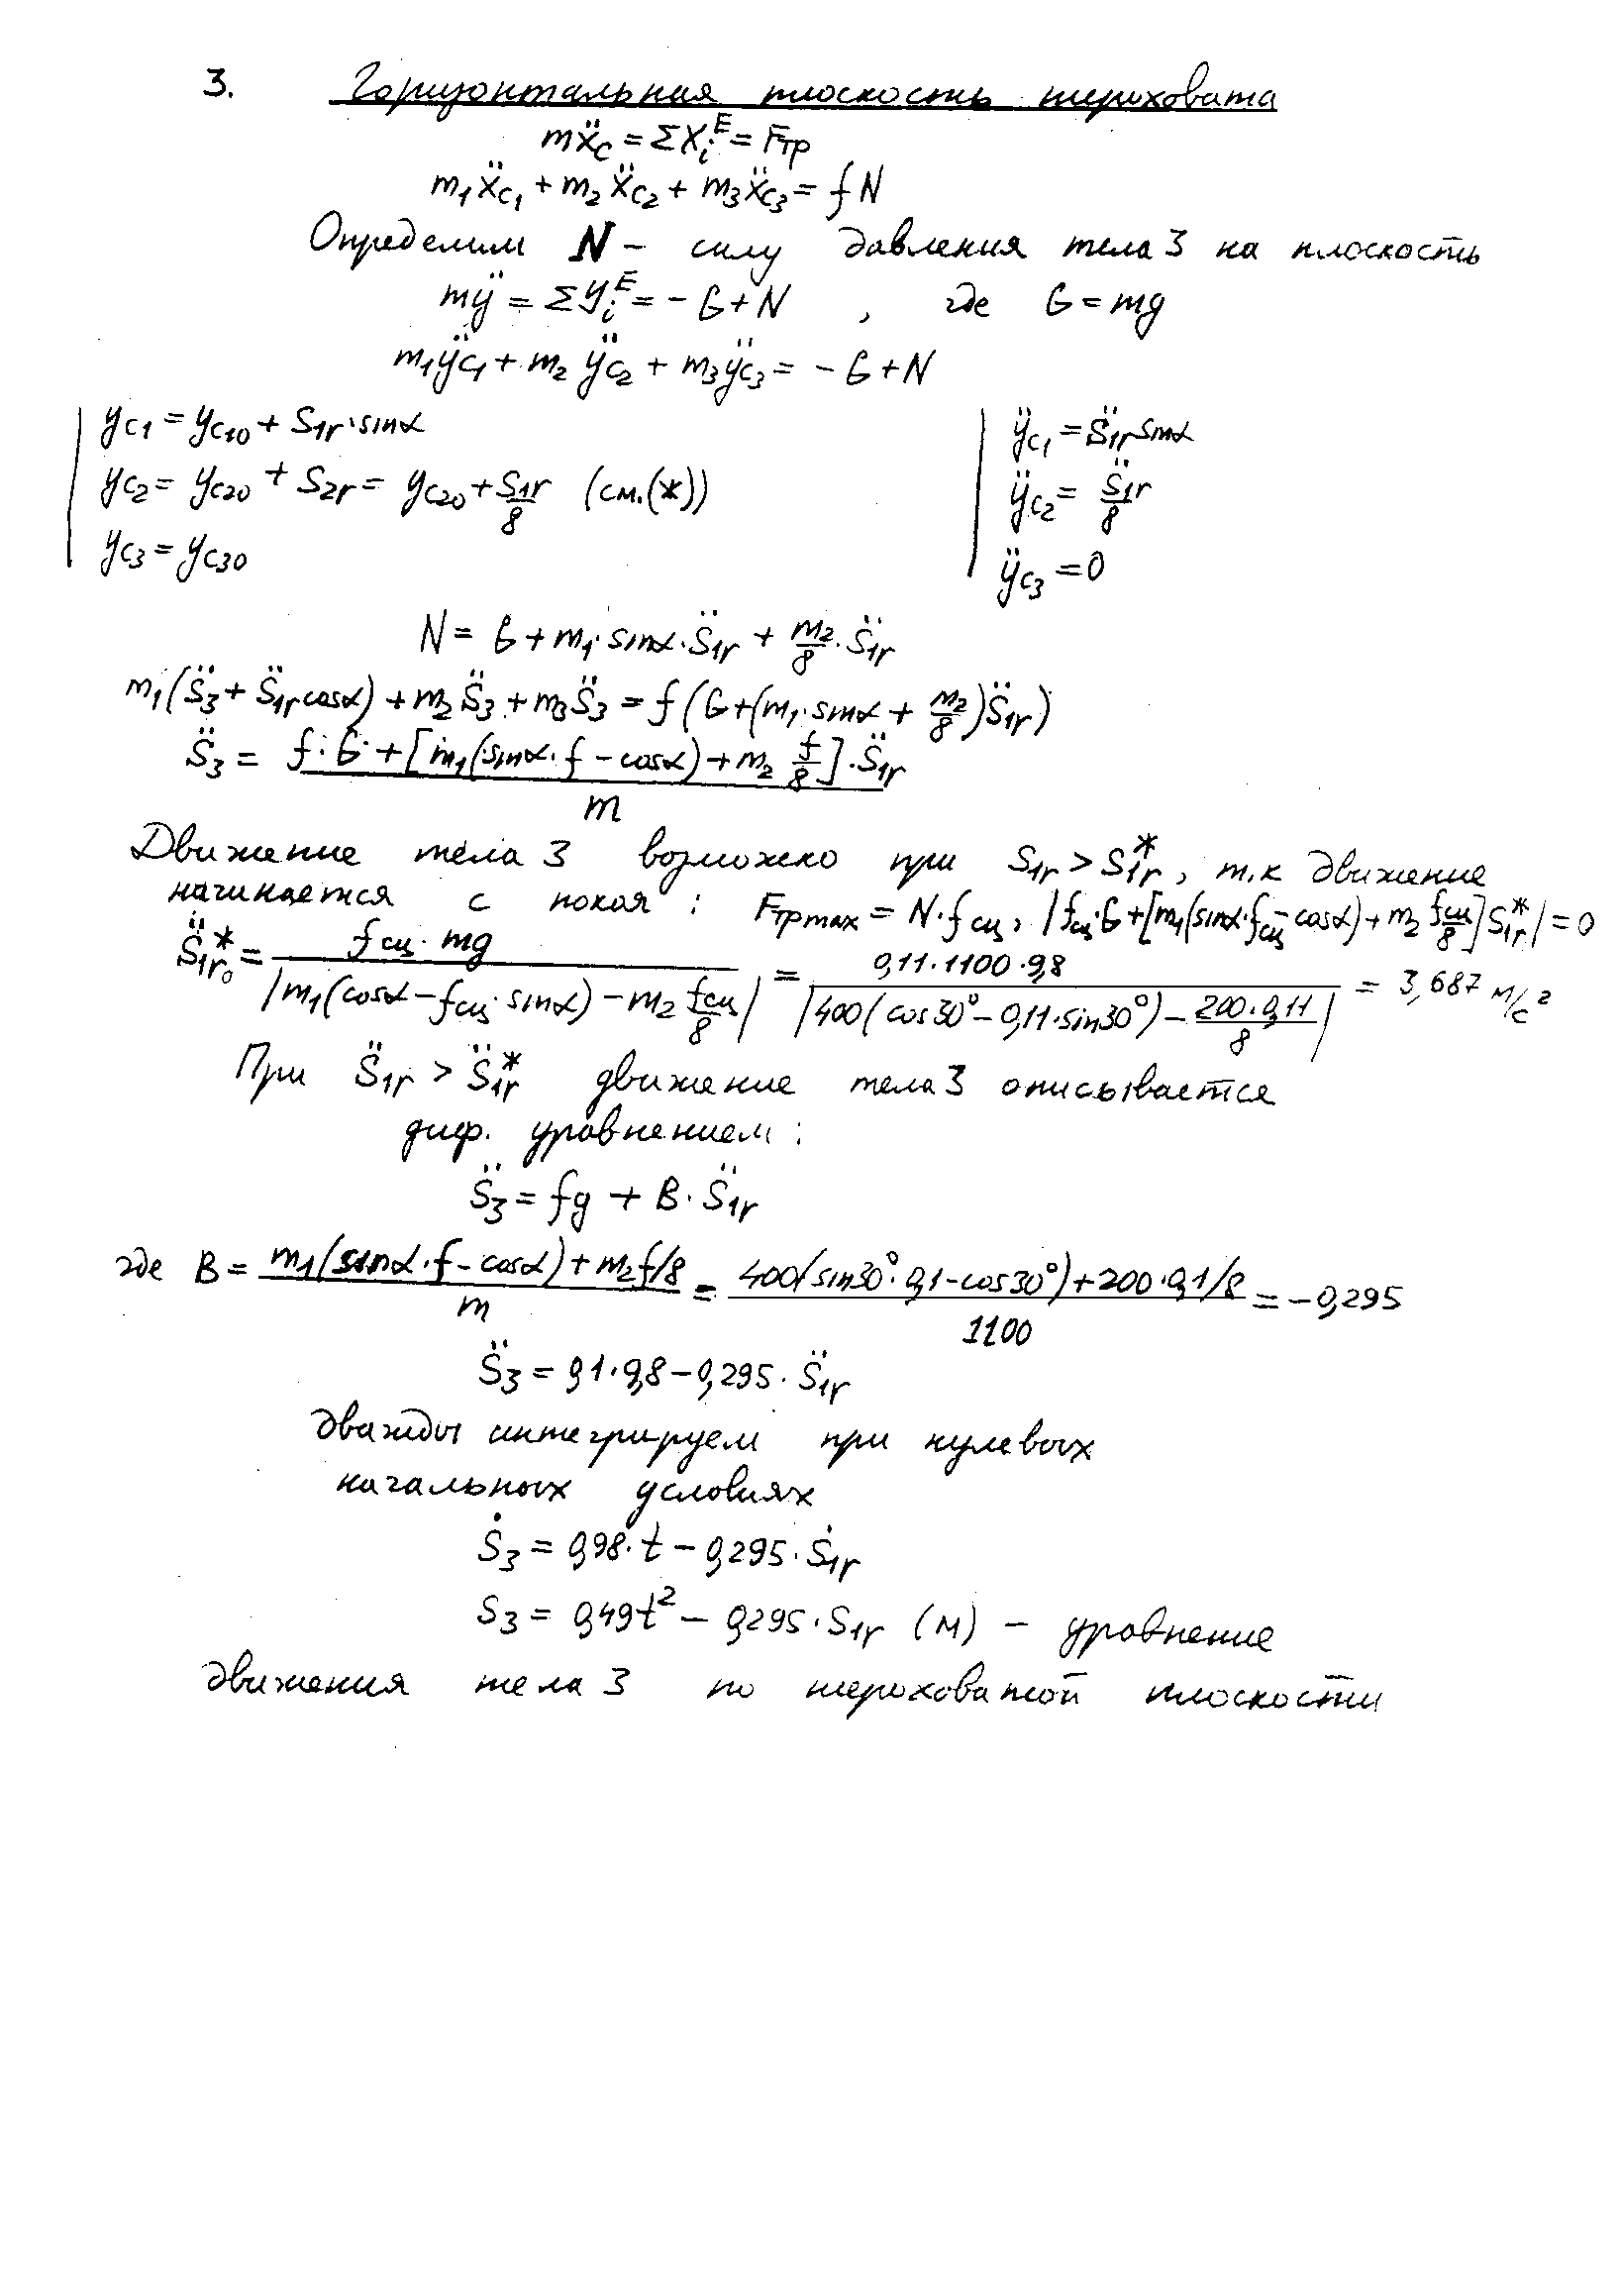 3. Горизонтальная плоскость шероховата
mẍ_C = ΣX_i^E = F_тр
m₁ẍ_C₁ + m₂ẍ_C₂ + m₃ẍ_C₃ = fN
Определим N – силу давления тела 3 на плоскость
mÿ = Σy_i^E = −G + N , где G = mg
m₁ÿ_C₁ + m₂ÿ_C₂ + m₃ÿ_C₃ = −G + N
y_C1 = y_C10 + S_1r·sinα ÿ_C₁ = S̈_1r sinα
y_C2 = y_C20 + S_2r = y_C20 + S_1r/8 (см.(*)) ÿ_C₂ = S̈_1r/8
y_C3 = y_C30 ÿ_C₃ = 0
N = G + m₁·sinα·S̈_1r + m₂/8·S̈_1r
m₁(S̈₃ + S̈_1r cosα) + m₂S̈₃ + m₃S̈₃ = f(G + (m₁·sinα + m₂/8)S̈_1r)
S̈₃ = (f·G + [m₁(sinα·f − cosα) + m₂ f/8]·S̈_1r)/m
Движение тела 3 возможно при S_1r > S_1r*, т.к движение
начинается с покоя : F_трmax = N·f_сц, |f_сц·G + [m₁(sinα·f_сц − cosα) + m₂ f_сц/8]S̈_1r*| = 0
S̈_1r₀* = f_сц·mg / |m₁(cosα − f_сц·sinα) − m₂ f_сц/8| = 0,11·1100·9,8 / |400(cos30° − 0,11·sin30°) − 200·0,11/8| = 3,687 м/с²
При S̈_1r > S̈_1r* движение тела 3 описывается
диф. уравнением :
S̈₃ = fg + B·S̈_1r
где B = (m₁(sinα·f − cosα) + m₂f/8)/m = (400(sin30°·0,1 − cos30°) + 200·0,1/8)/1100 = −0,295
S̈₃ = 0,1·9,8 − 0,295·S̈_1r
дважды интегрируем при нулевых
начальных условиях
Ṡ₃ = 0,98·t − 0,295·Ṡ_1r
S₃ = 0,49t² − 0,295·S_1r (м) – уравнение
движения тела 3 по шероховатой плоскости